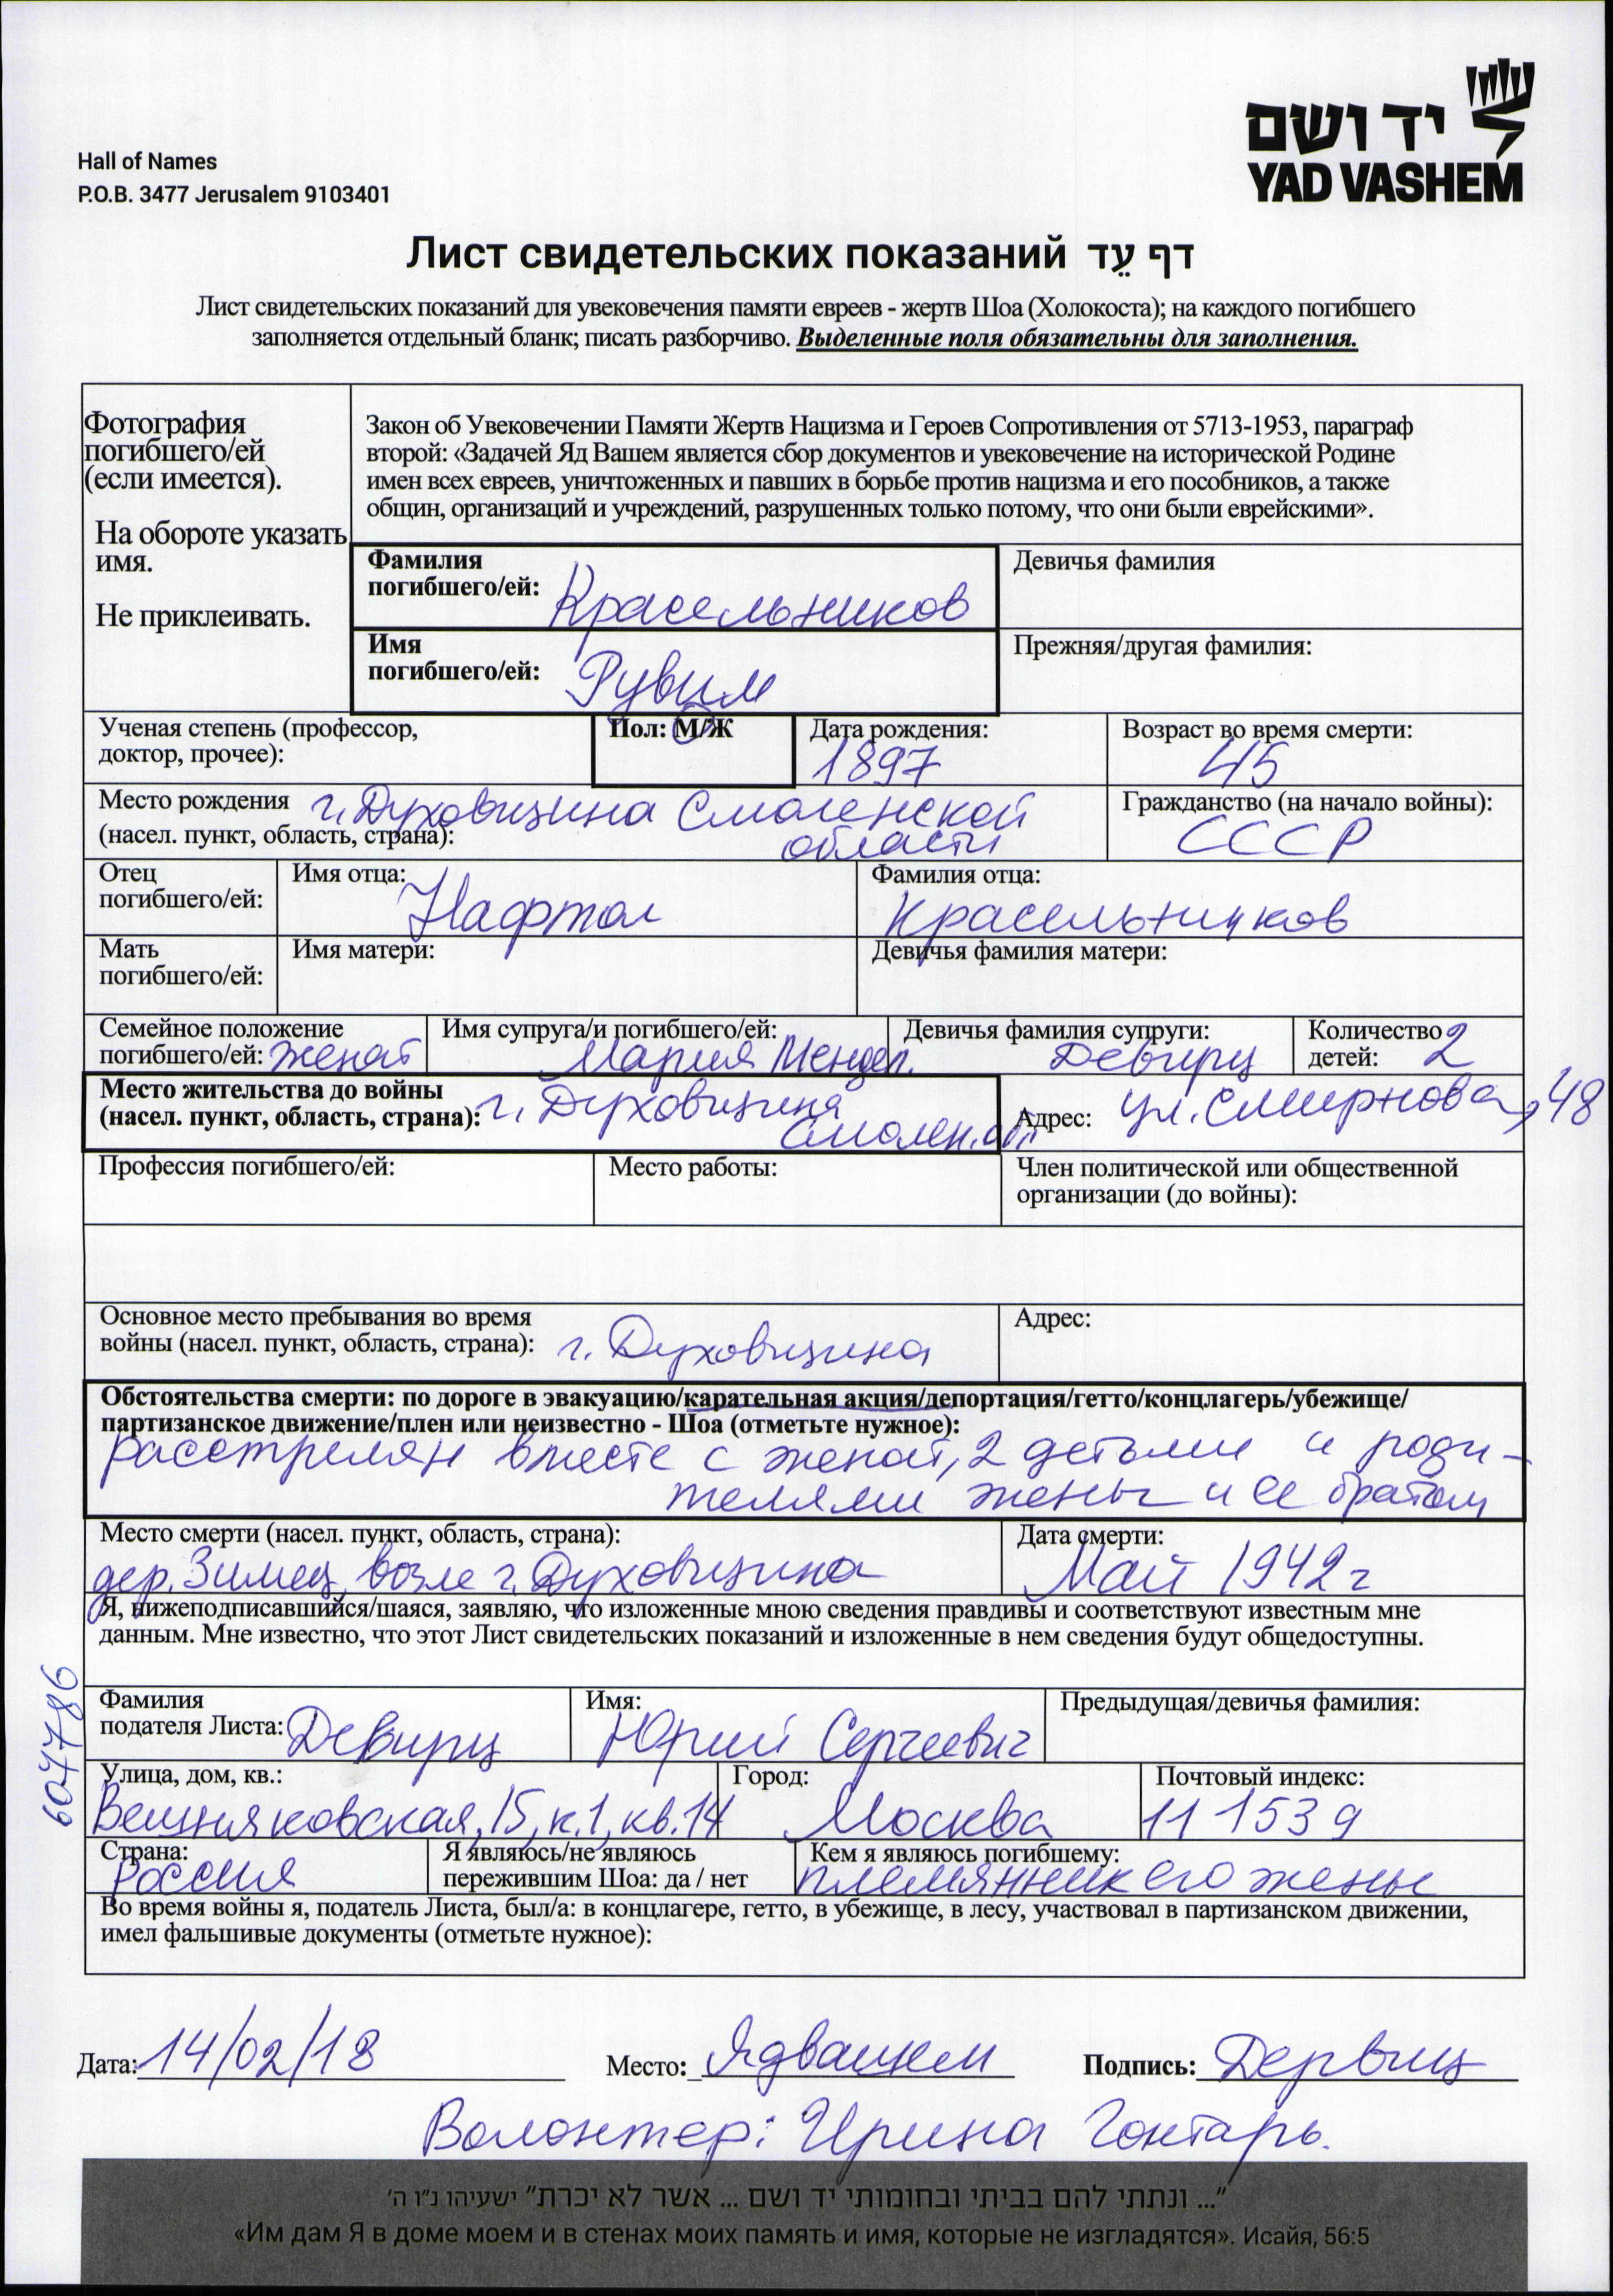 יד ושם
YAD VASHEM
Hall of Names
P.O.B. 3477 Jerusalem 9103401
Лист свидетельских показаний דף עֵד
Лист свидетельских показаний для увековечения памяти евреев - жертв Шоа (Холокоста); на каждого погибшего
заполняется отдельный бланк; писать разборчиво. Выделенные поля обязательны для заполнения.
Фотография
погибшего/ей
(если имеется).
На обороте указать
имя.
Не приклеивать.
Закон об Увековечении Памяти Жертв Нацизма и Героев Сопротивления от 5713-1953, параграф
второй: «Задачей Яд Вашем является сбор документов и увековечение на исторической Родине
имен всех евреев, уничтоженных и павших в борьбе против нацизма и его пособников, а также
общин, организаций и учреждений, разрушенных только потому, что они были еврейскими».
Фамилия
погибшего/ей: Красельников
Девичья фамилия
Имя
погибшего/ей: Рувим
Прежняя/другая фамилия:
Ученая степень (профессор,
доктор, прочее):
Пол: М/Ж
Дата рождения:
1897
Возраст во время смерти:
45
Место рождения г. Духовщина Смоленской
(насел. пункт, область, страна): области
Гражданство (на начало войны):
СССР
Отец
погибшего/ей:
Имя отца:
Нафтол
Фамилия отца:
Красельников
Мать
погибшего/ей:
Имя матери:
Девичья фамилия матери:
Семейное положение
погибшего/ей: женат
Имя супруга/и погибшего/ей:
Мария Мендел.
Девичья фамилия супруги:
Девирц
Количество 2
детей:
Место жительства до войны
(насел. пункт, область, страна): г. Духовщина
Смолен. обл.
Адрес: ул. Смирнова, 48
Профессия погибшего/ей:
Место работы:
Член политической или общественной
организации (до войны):
Основное место пребывания во время
войны (насел. пункт, область, страна): г. Духовщина
Адрес:
Обстоятельства смерти: по дороге в эвакуацию/карательная акция/депортация/гетто/концлагерь/убежище/
партизанское движение/плен или неизвестно - Шоа (отметьте нужное):
расстрелян вместе с женой, 2 детьми и роди-
телями жены и ее братом
Место смерти (насел. пункт, область, страна):
дер. Зимец, возле г. Духовщина
Дата смерти:
Май 1942 г
Я, нижеподписавшийся/шаяся, заявляю, что изложенные мною сведения правдивы и соответствуют известным мне
данным. Мне известно, что этот Лист свидетельских показаний и изложенные в нем сведения будут общедоступны.
607786
Фамилия
подателя Листа: Девирц
Имя:
Юрий Сергеевич
Предыдущая/девичья фамилия:
Улица, дом, кв.:
Вешняковская, 15, к.1, кв.14
Город:
Москва
Почтовый индекс:
111539
Страна:
Россия
Я являюсь/не являюсь
пережившим Шоа: да / нет
Кем я являюсь погибшему:
племянник его жены
Во время войны я, податель Листа, был/а: в концлагере, гетто, в убежище, в лесу, участвовал в партизанском движении,
имел фальшивые документы (отметьте нужное):
Дата: 14/02/18 Место: Ядвашем Подпись: Дервиц
Волонтер: Ирина Гонтарь.
"... ונתתי להם בביתי ובחומותי יד ושם ... אשר לא יכרת" ישעיהו נ"ו ה'
«Им дам Я в доме моем и в стенах моих память и имя, которые не изгладятся». Исайя, 56:5